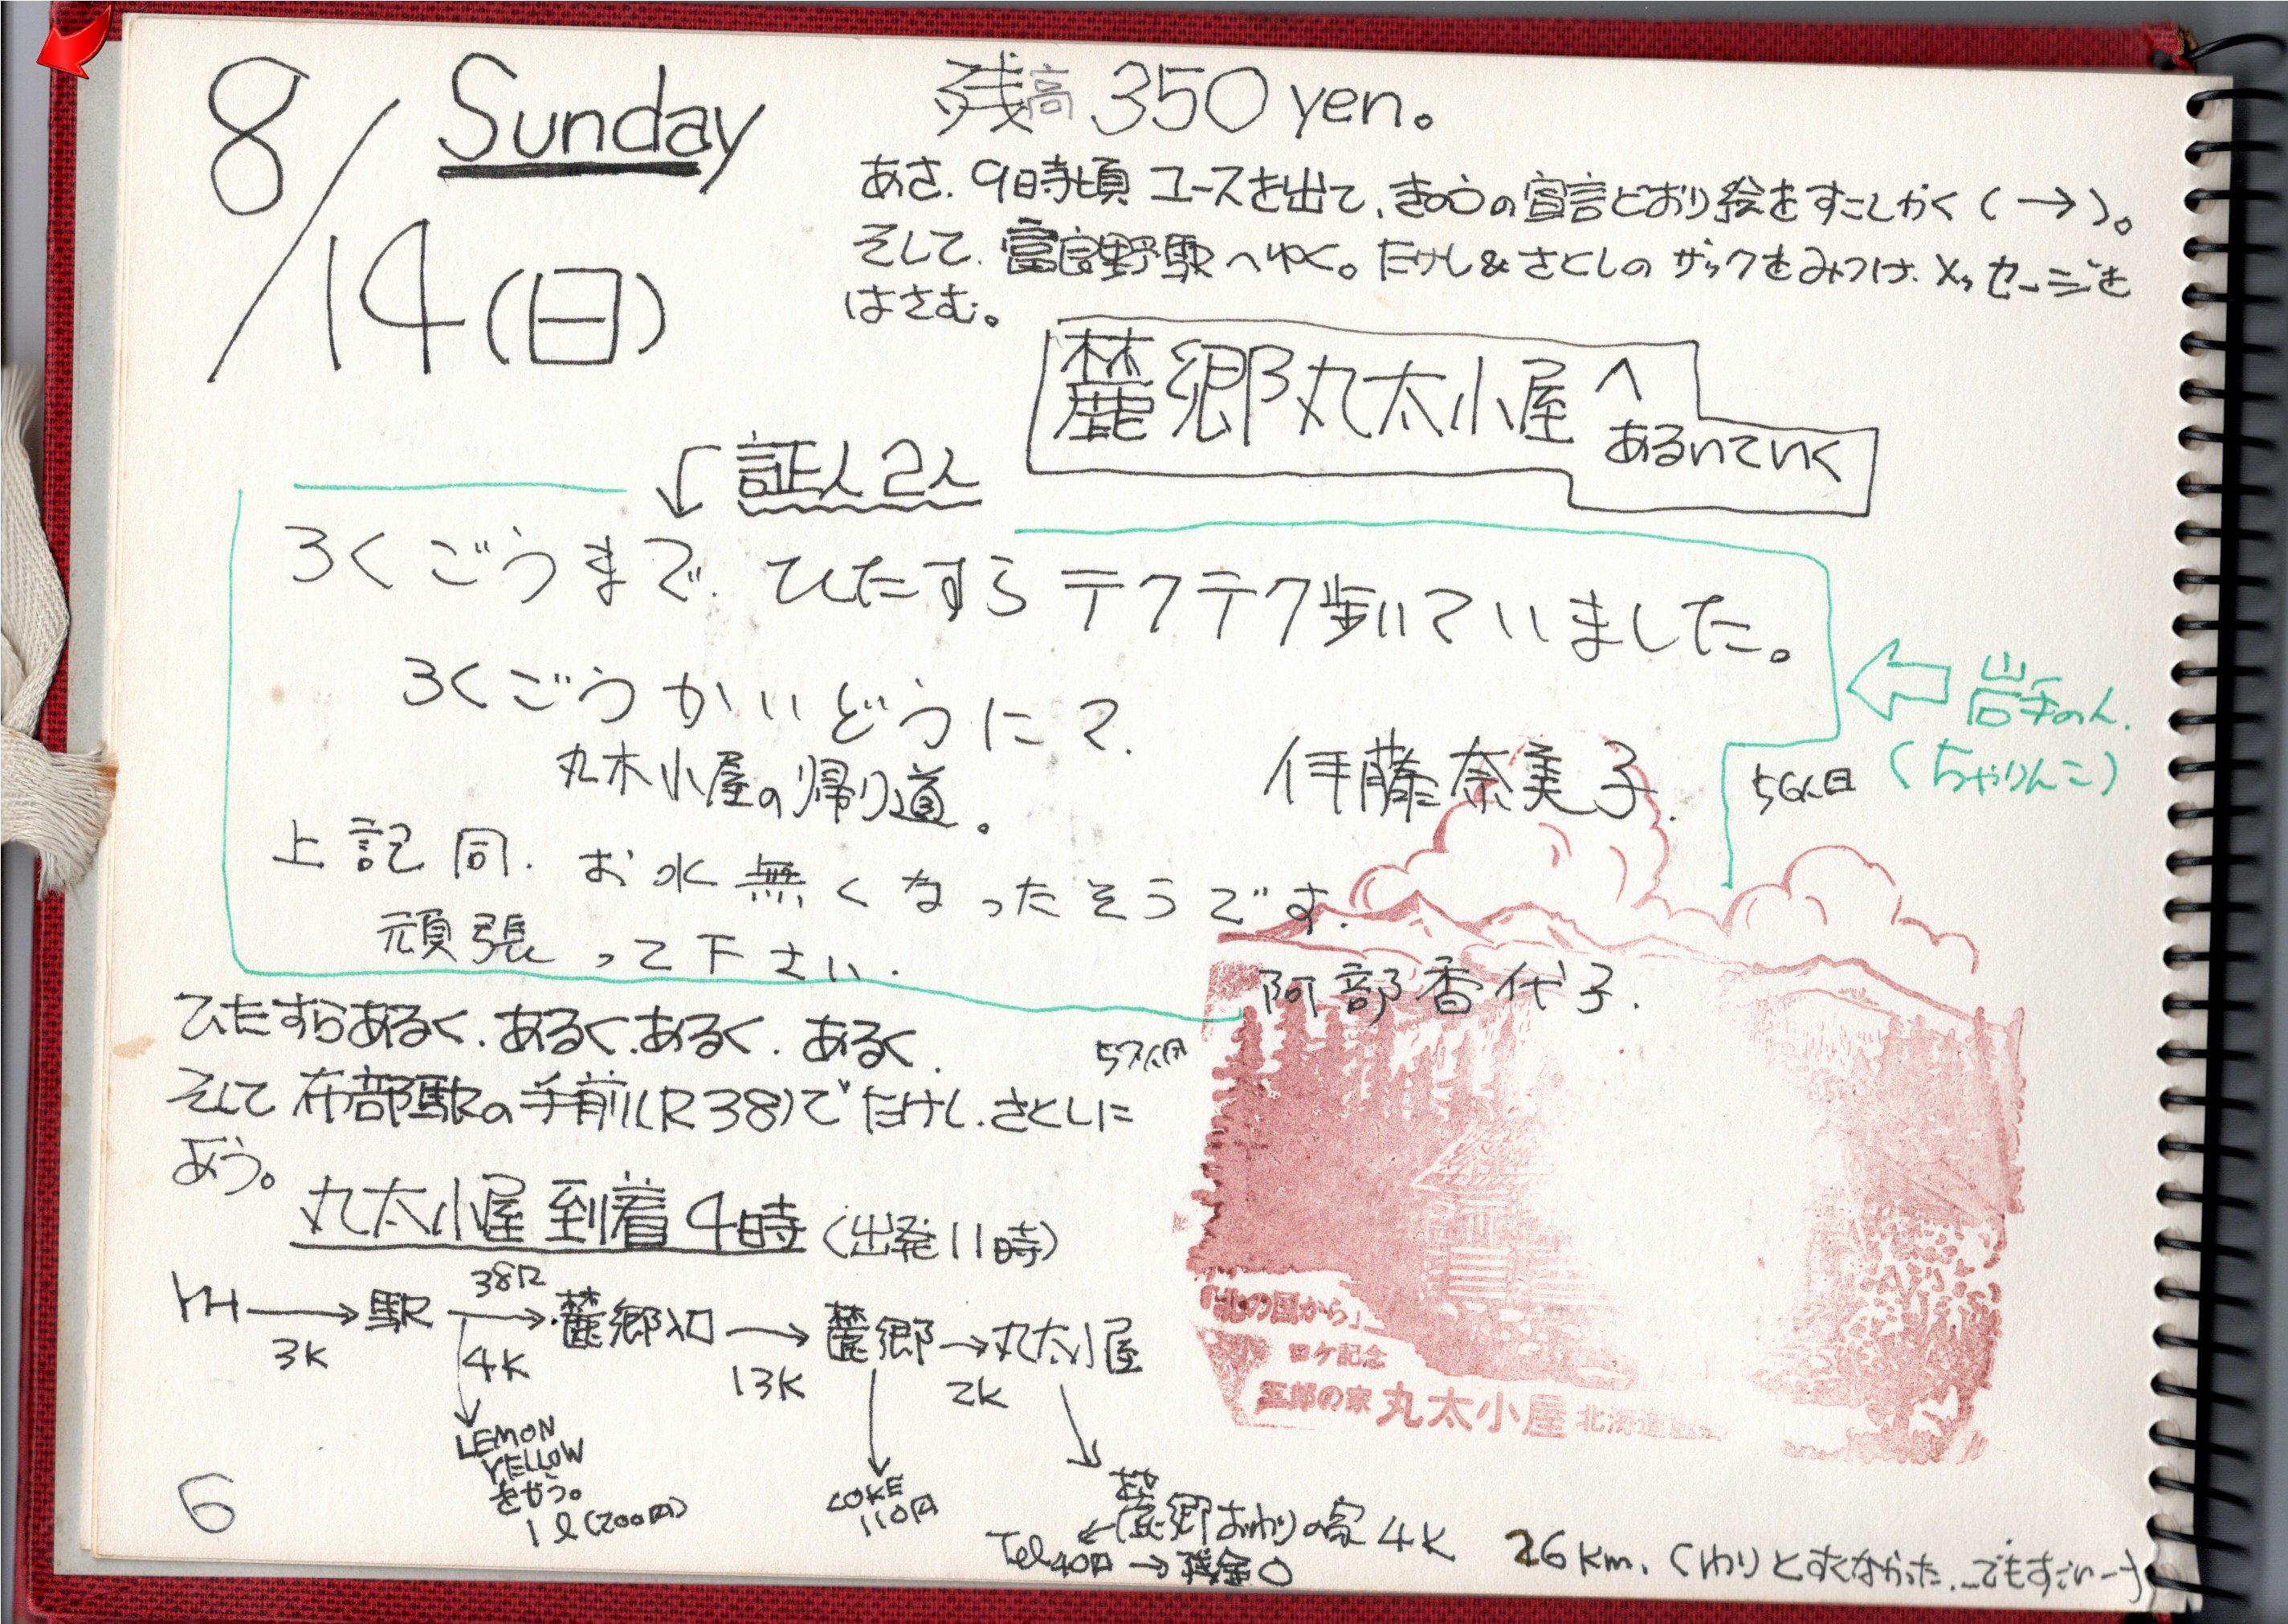 8/14(日)
Sunday
残高 350 yen。
あさ、9時頃 ユースを出て、きのうの宣言どおり絵をすこしかく(→)。
そして、富良野駅へゆく。たけし&さとしの ザックをみつけ、メッセージを
はさむ。
麓郷丸太小屋へ
あるいていく
証人2人
ろくごうまで、ひたすら テクテク歩いていました。
ろくごうかいどうにて、
丸木小屋の帰り道。
伊藤奈美子.
56人目
岩手の人.
(ちゃりんこ)
上記同. お水無くなったそうです.
頑張って下さい.
阿部香代子.
57人目
ひたすらあるく、あるく、あるく、あるく、
そして 布部駅の手前(R38)で たけし、さとしに
あう。
丸太小屋到着 4時 (出発11時)
YH → 駅 → 麓郷入口 → 麓郷 → 丸太小屋
38R
3K 4K 13K 2K
LEMON
YELLOW
をかう。
1ℓ(200円)
COKE
110円
麓郷おわりの家 4K
Tel 40円 → 残金0
26km. (わりとすくなかった、でもすごいー)
6
「北の国から」
ロケ記念
五郎の家 丸太小屋 北海道